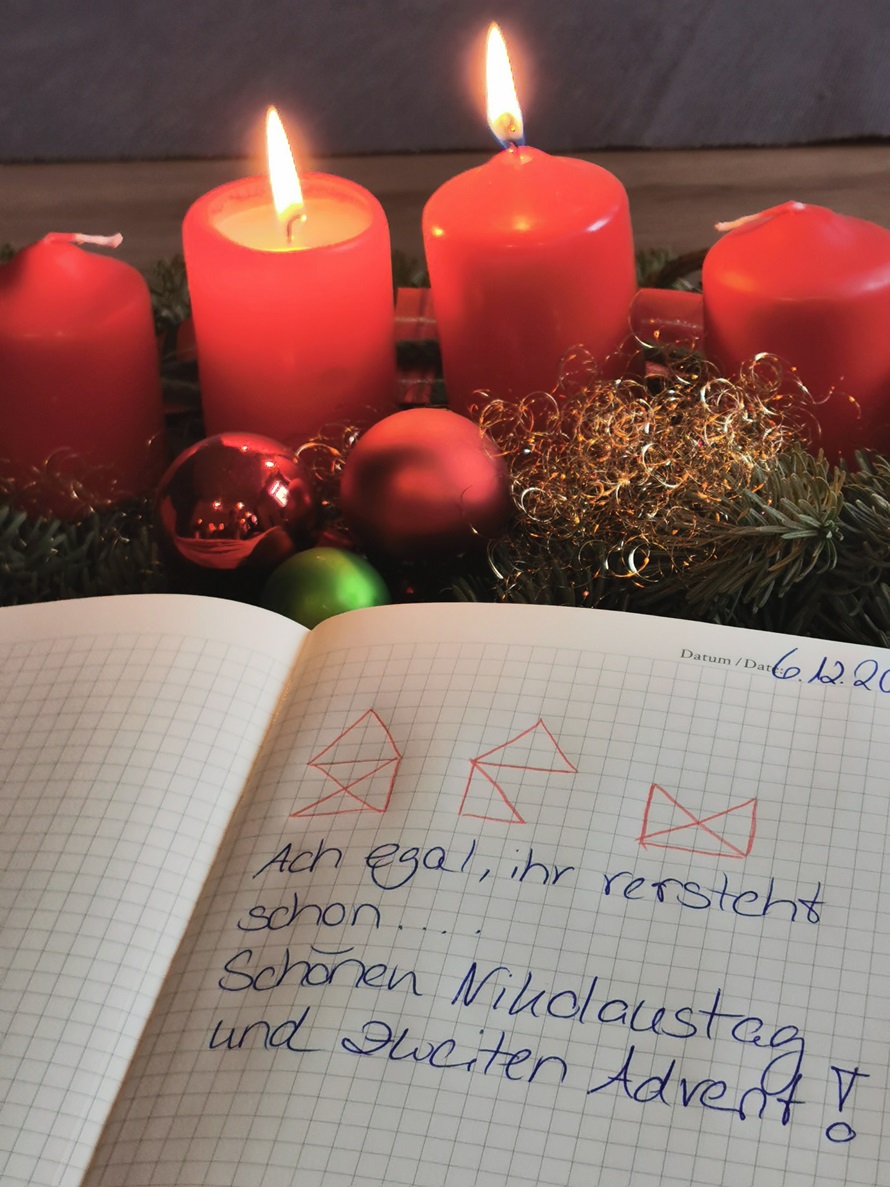 Datum / Date: 6.12.20
Ach egal, ihr versteht
schon....
Schönen Nikolaustag
und zweiten Advent!